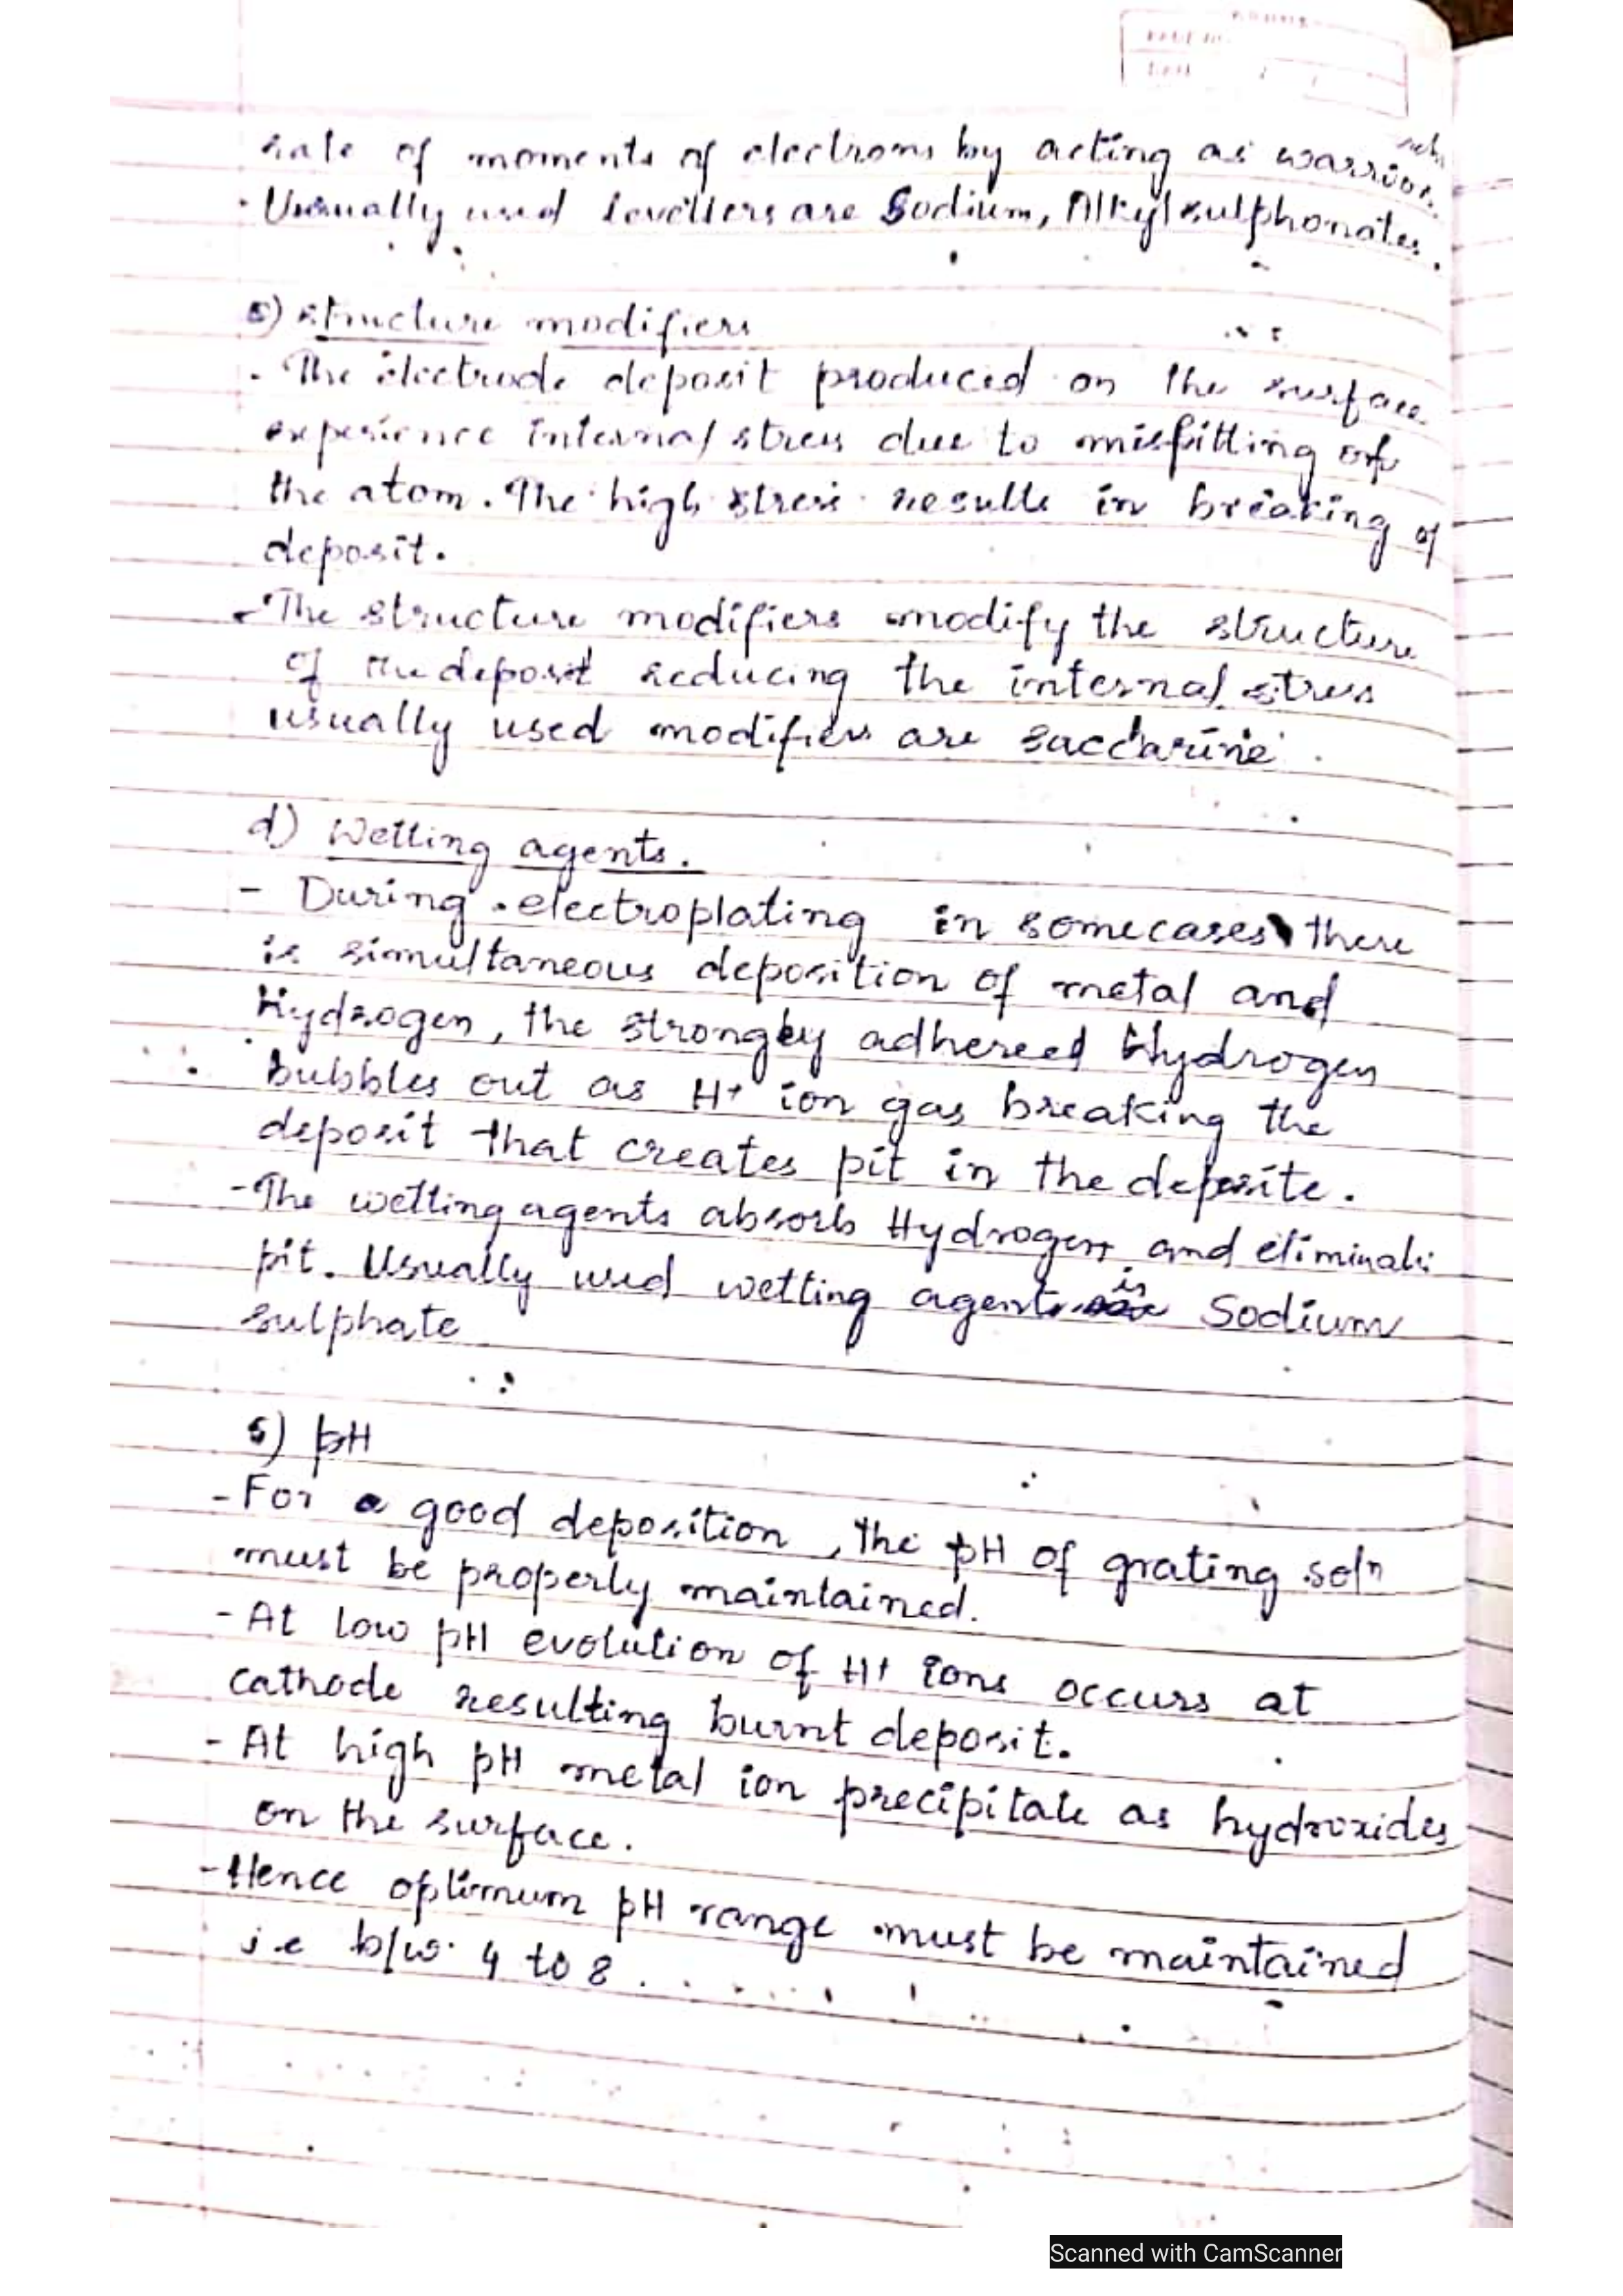 rate of moments of electrons by acting as warrior
· Usually used levellers are Sodium, Alkyl sulphonates.
c) structure modifiers
- The electrode deposit produced on the surface
experience internal stress due to misfitting of
the atom. The high stress results in breaking of
deposit.
- The structure modifiers modify the structure
of the deposit reducing the internal stress
usually used modifiers are saccharine.
d) Wetting agents.
- During electroplating in somecases there
is simultaneous deposition of metal and
Hydrogen, the strongly adhereed Hydrogen
bubbles out as H+ ion gas breaking the
deposit that creates pit in the deposite.
- The wetting agents absorb Hydrogen and eliminate
pit. Usually used wetting agents is Sodium
sulphate
5) pH
- For a good deposition, the pH of grating soln
must be properly maintained.
- At low pH evolution of H+ ions occurs at
cathode resulting burnt deposit.
- At high pH metal ion precipitate as hydroxides
on the surface.
- Hence optimum pH range must be maintained
i.e b/w 4 to 8.
Scanned with CamScanner